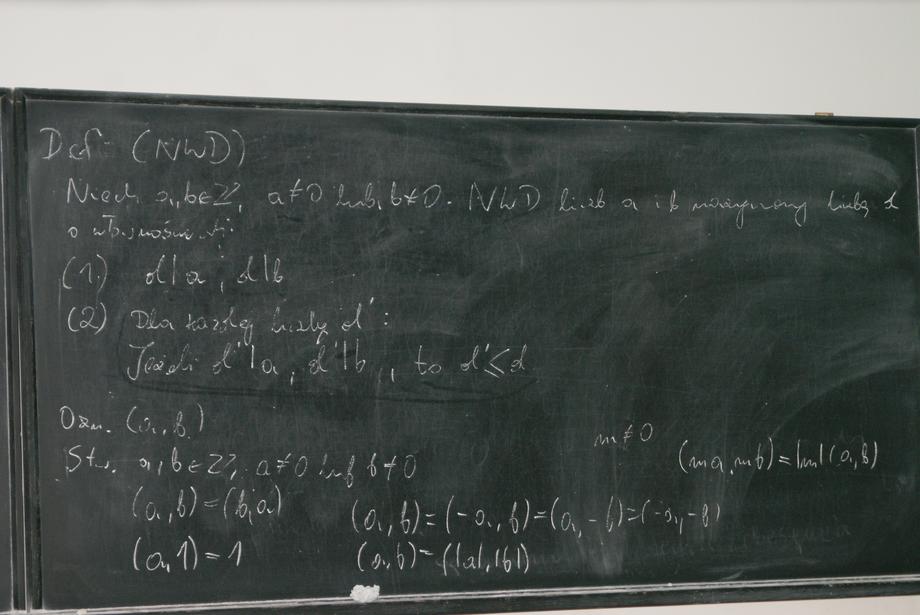 Def. (NWD)
Niech a, b ∈ ℤ, a ≠ 0 lub b ≠ 0. NWD liczb a i b nazywamy liczbę d
o własności:
(1) d|a, d|b
(2) Dla każdej liczby d':
Jeżeli d'|a, d'|b, to d' ≤ d
Ozn. (a, b)
Stw. a, b ∈ ℤ, a ≠ 0 lub b ≠ 0
m ≠ 0
(ma, mb) = |m|(a, b)
(a, b) = (b, a)
(a, b) = (-a, b) = (a, -b) = (-a, -b)
(a, 1) = 1
(a, b) = (|a|, |b|)